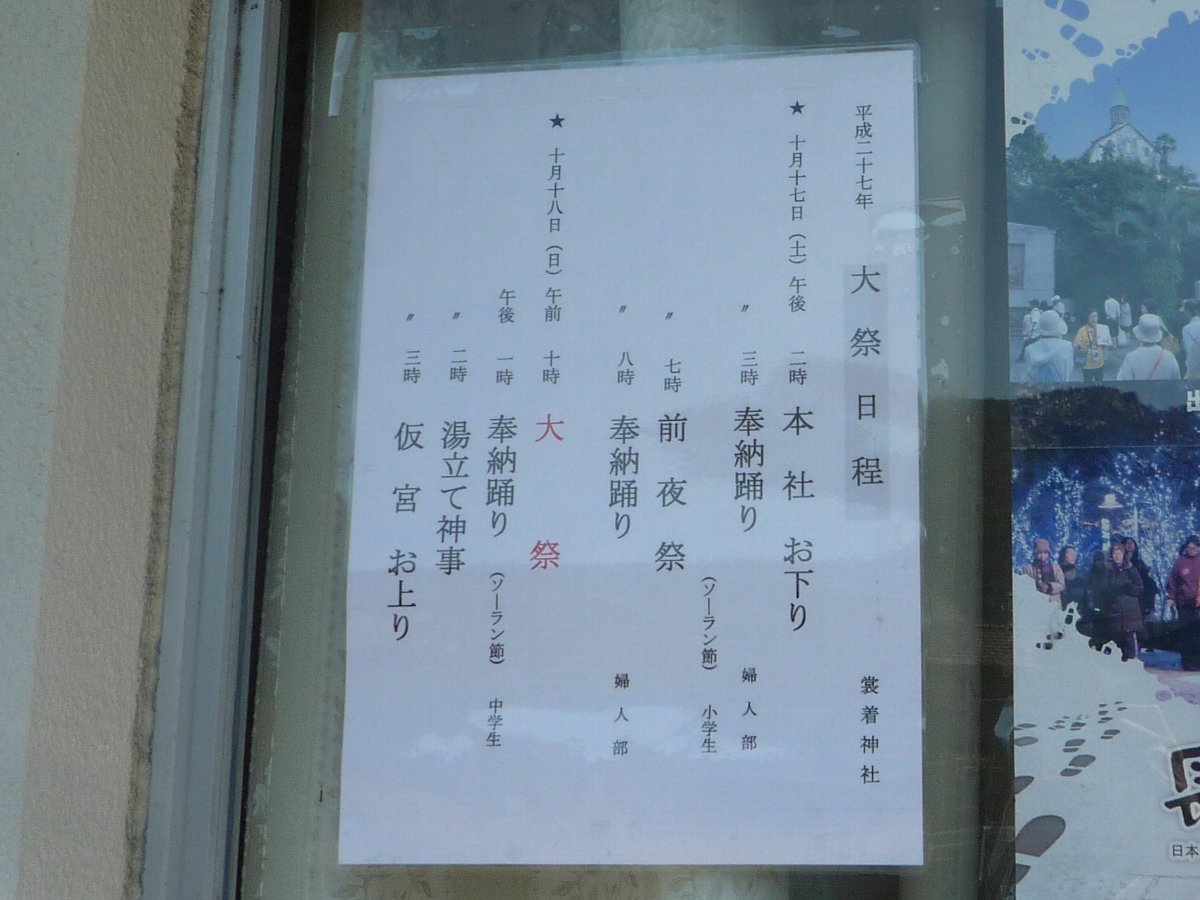 平成二十七年 大祭日程 裳着神社
★ 十月十七日（土）午後 二時 本社 お下り
〃 三時 奉納踊り 婦人部
（ソーラン節） 小学生
〃 七時 前夜祭
〃 八時 奉納踊り 婦人部
★ 十月十八日（日）午前 十時 大祭
午後 一時 奉納踊り（ソーラン節） 中学生
〃 二時 湯立て神事
〃 三時 仮宮 お上り
日本